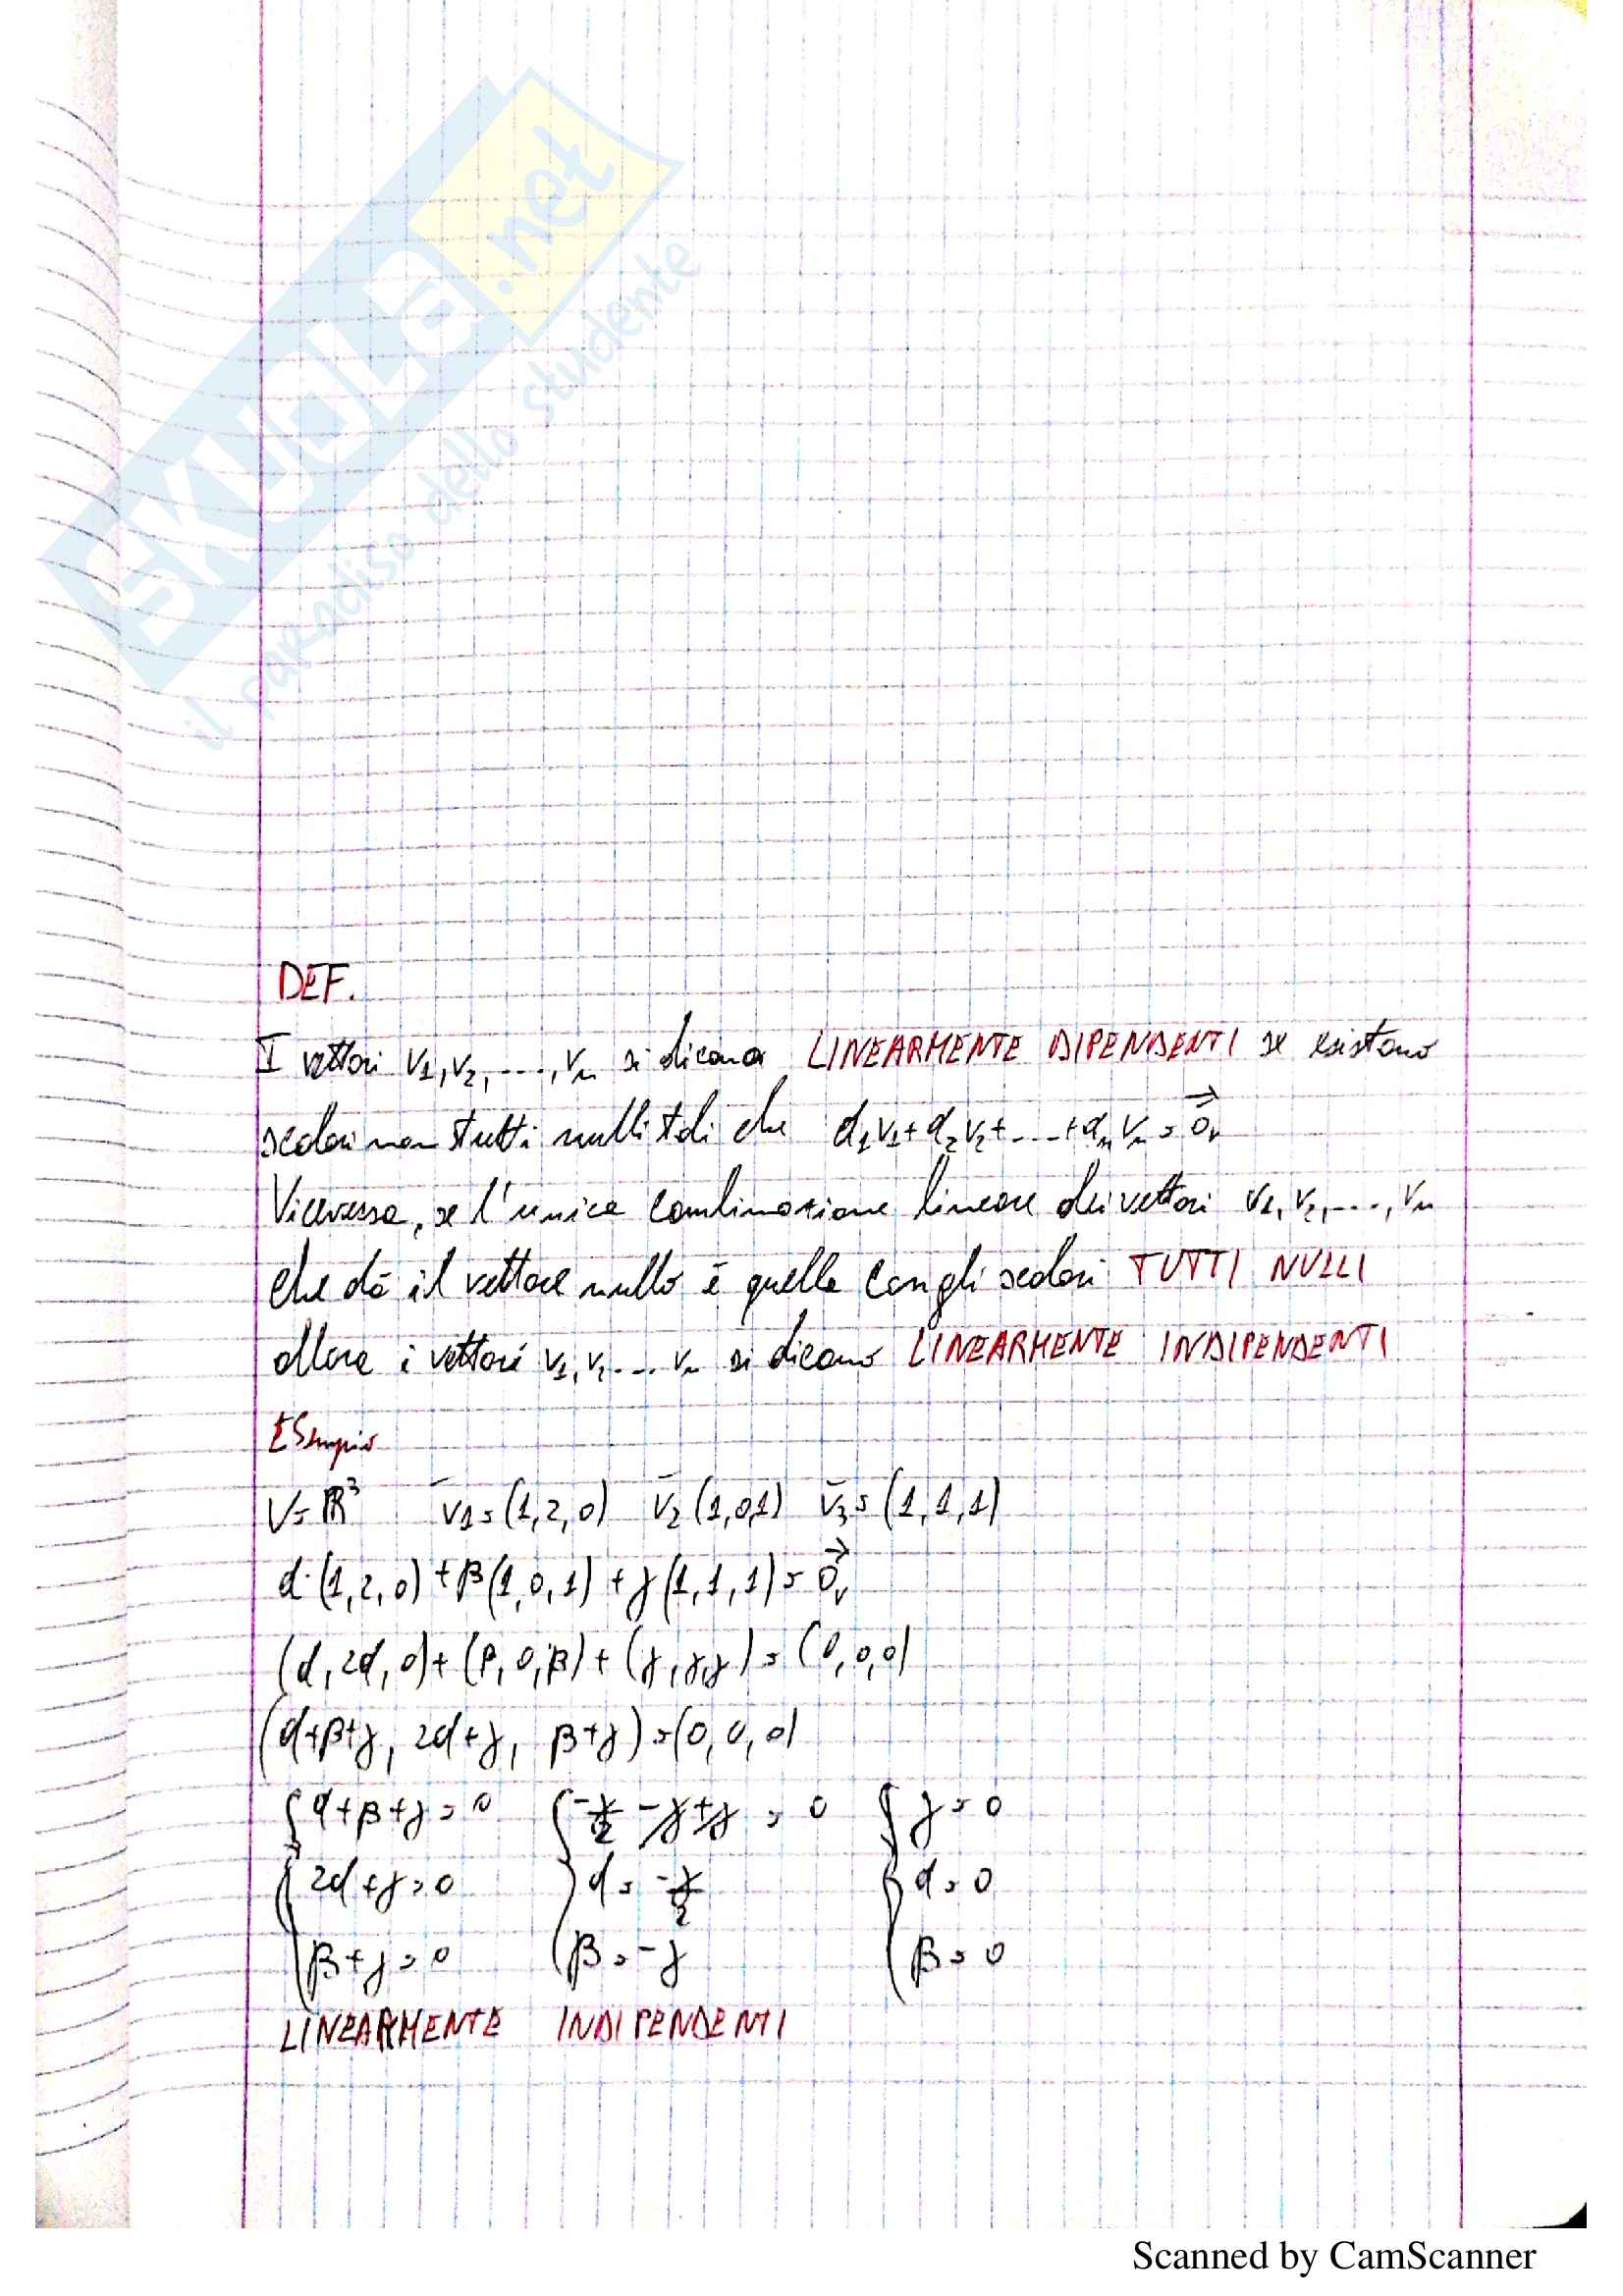 SKUOLA.net
il paradiso dello studente
DEF.
I vettori v1, v2, ..., vn si dicono LINEARMENTE DIPENDENTI se esistono
scalari non tutti nulli tali che α1v1+α2v2+...+αnvn = 0⃗v
Viceversa, se l'unica combinazione lineare dei vettori v1, v2, ..., vn
che dà il vettore nullo è quella con gli scalari TUTTI NULLI
allora i vettori v1, v2 ... vn si dicono LINEARMENTE INDIPENDENTI
ESempio
V=ℝ³ v̄1=(1,2,0) v̄2(1,0,1) v̄3=(1,1,1)
α·(1,2,0)+β(1,0,1)+γ(1,1,1)=0⃗v
(α,2α,0)+(β,0,β)+(γ,γ,γ)=(0,0,0)
(α+β+γ, 2α+γ, β+γ)=(0,0,0)
{α+β+γ=0 {-γ/2-γ+γ=0 {γ=0
2α+γ=0 α=-γ/2 α=0
β+γ=0 β=-γ β=0
LINEARMENTE INDIPENDENTI
Scanned by CamScanner